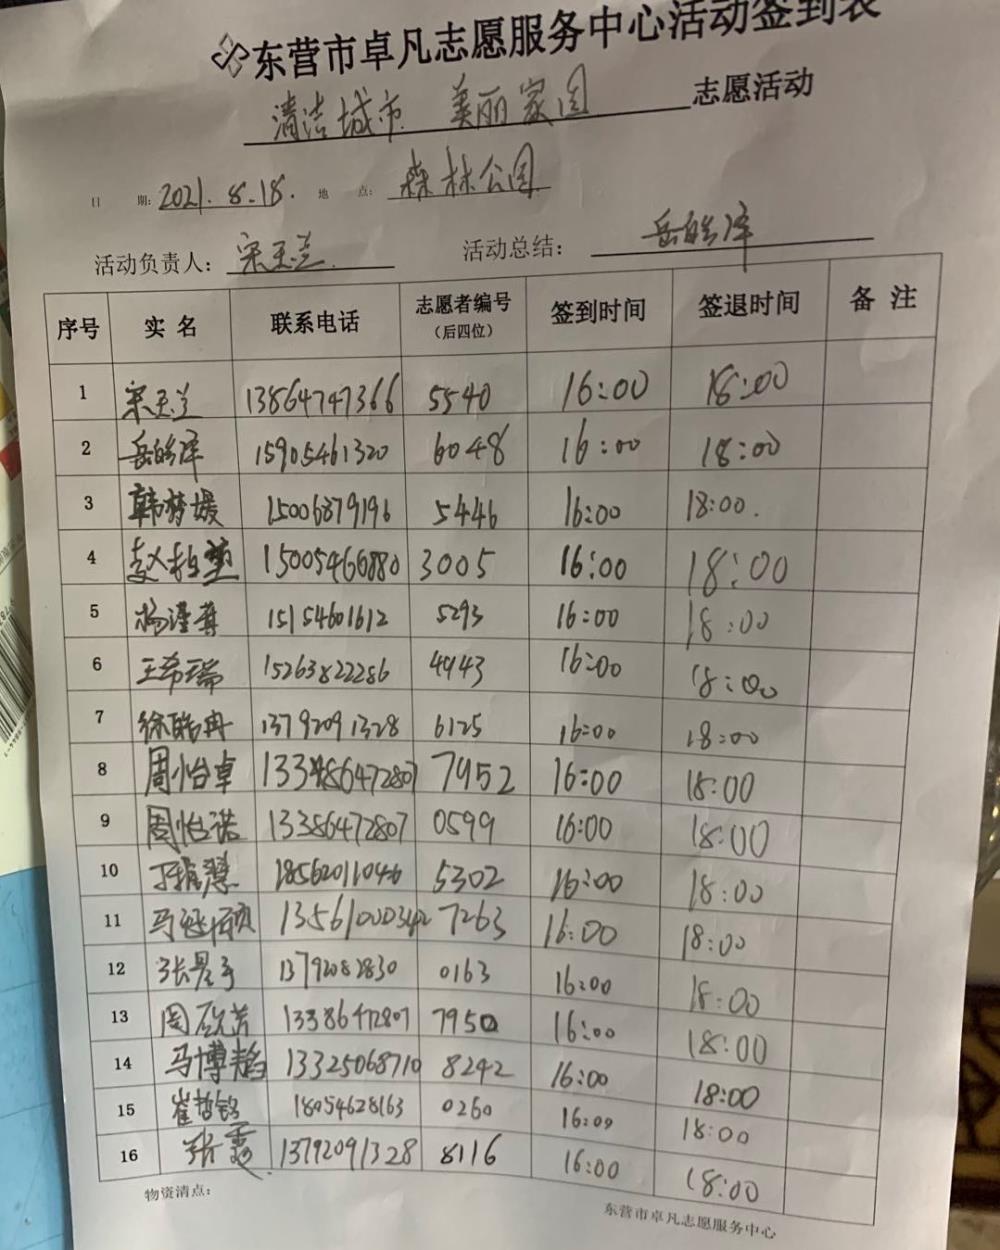 东营市卓凡志愿服务中心活动签到表
清洁城市 美丽家园 志愿活动
日 期: 2021.8.18. 地 点: 森林公园
活动负责人: 宋玉兰 活动总结: 岳皓泽
序号 实 名 联系电话 志愿者编号(后四位) 签到时间 签退时间 备 注
1 宋玉兰 13864747366 5540 16:00 18:00
2 岳皓泽 15905461320 6048 16:00 18:00
3 韩梦媛 15006879196 5446 16:00 18:00.
4 赵 15005466880 3005 16:00 18:00
5 杨 15154601612 5293 16:00 18:00
6 王希瑞 15263822286 4943 16:00 18:00
7 徐皓冉 13792091328 6125 16:00 18:00
8 周怡卓 7952 16:00 18:00
9 周怡诺 13386472807 0599 16:00 18:00
10 18562011046 5302 16:00 18:00
11 马 7263 16:00 18:00
12 张 13792082830 0163 16:00 18:00
13 周 13386472807 7950 16:00 18:00
14 马博韬 13325068710 8242 16:00 18:00
15 崔哲铭 18054628163 0260 16:00 18:00
16 张霞 13792091328 8116 16:00 18:00
物资清点:
东营市卓凡志愿服务中心